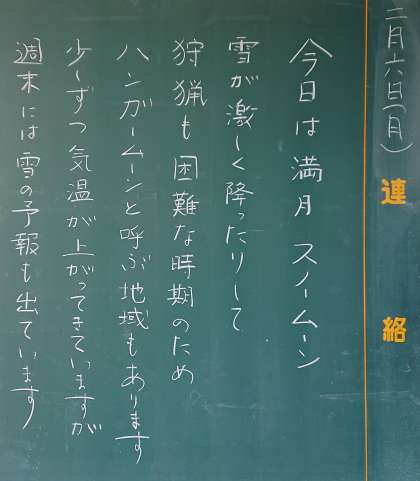 二月六日(月)
連絡
今日は満月 スノームーン
雪が激しく降ったりして
狩猟も困難な時期のため
ハンガームーンと呼ぶ地域もあります
少しずつ気温が上がってきていますが
週末には雪の予報も出ています